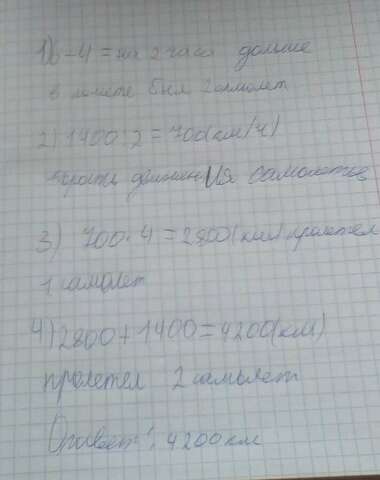 1) 6 - 4 = на 2 часа дольше
в полёте был 2 самолет
2) 1400 : 2 = 700 (км/ч)
скорость движения самолетов
3) 700 · 4 = 2800 (км) пролетел
1 самолет
4) 2800 + 1400 = 4200 (км)
пролетел 2 самолет
Ответ: 4200 км